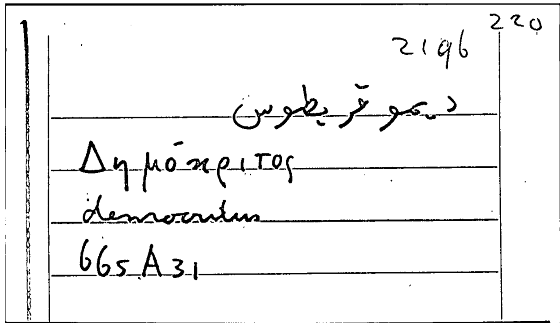 220
2196
ديموقريطوس
Δημόκριτος
democritus
665 A 31